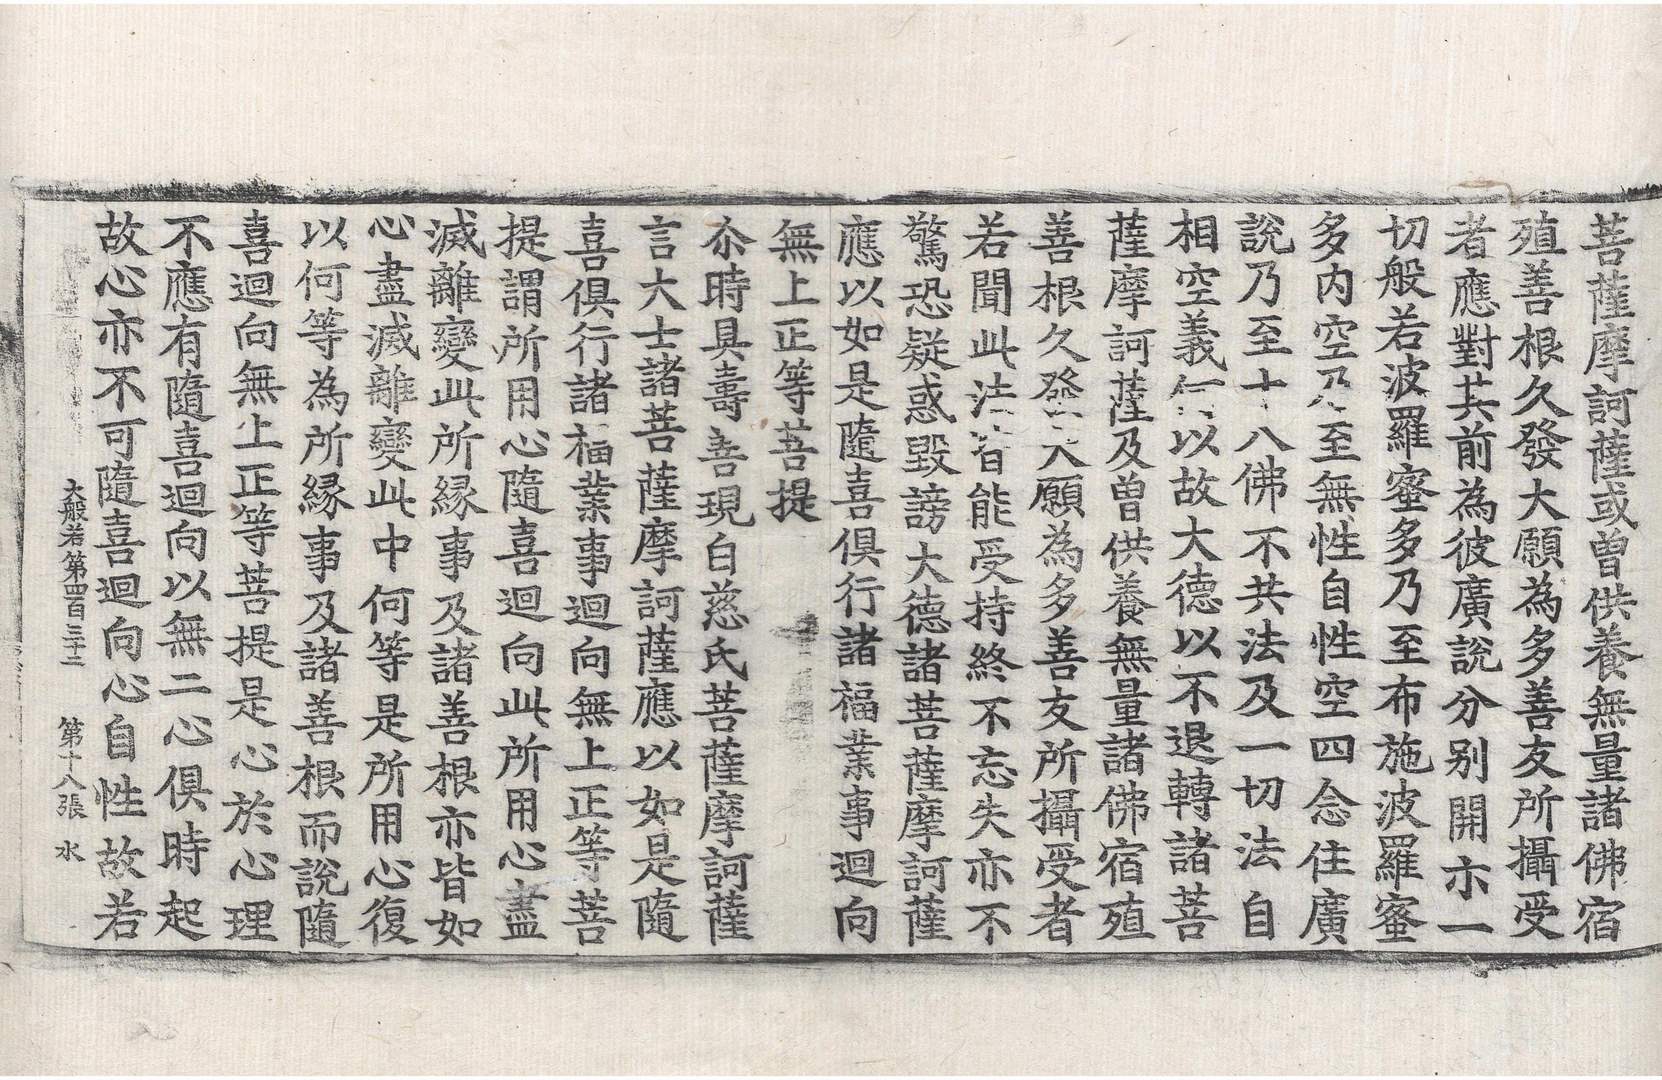 菩薩摩訶薩或曾供養無量諸佛宿
殖善根久發大願為多善友所攝受
者應對其前為彼廣說分別開示一
切般若波羅蜜多乃至布施波羅蜜
多內空乃至無性自性空四念住廣
說乃至十八佛不共法及一切法自
相空義何以故大德以不退轉諸菩
薩摩訶薩及曾供養無量諸佛宿殖
善根久發大願為多善友所攝受者
若聞此法皆能受持終不忘失亦不
驚恐疑惑毀謗大德諸菩薩摩訶薩
應以如是隨喜俱行諸福業事迴向
無上正等菩提
尒時具壽善現白慈氏菩薩摩訶薩
言大士諸菩薩摩訶薩應以如是隨
喜俱行諸福業事迴向無上正等菩
提謂所用心隨喜迴向此所用心盡
滅離變此所緣事及諸善根亦皆如
心盡滅離變此中何等是所用心復
以何等為所緣事及諸善根而說隨
喜迴向無上正等菩提是心於心理
不應有隨喜迴向以無二心俱時起
故心亦不可隨喜迴向心自性故若
大般若第四百三十二 第十八張 水